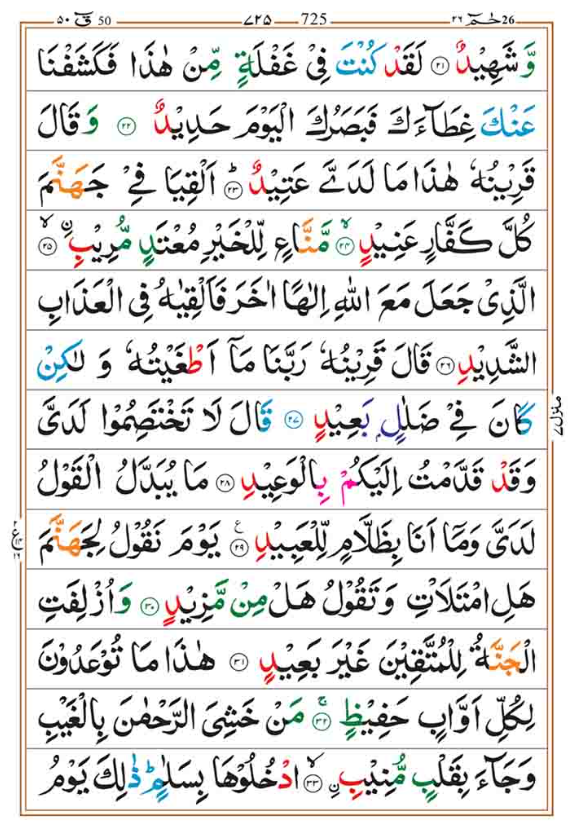 50 قٓ ۵۰ ۷۲۵ 725 حٰمٓ ۲۶ 26
وَّ شَهِيْدٌ ﴿۲۱﴾ لَقَدْ كُنْتَ فِيْ غَفْلَةٍ مِّنْ هٰذَا فَكَشَفْنَا
عَنْكَ غِطَآءَكَ فَبَصَرُكَ الْيَوْمَ حَدِيْدٌ ﴿۲۲﴾ وَ قَالَ
قَرِيْنُهٗ هٰذَا مَا لَدَيَّ عَتِيْدٌ ؕ﴿۲۳﴾ اَلْقِيَا فِيْ جَهَنَّمَ
كُلَّ كَفَّارٍ عَنِيْدٍ ۙ﴿۲۴﴾ مَّنَّاعٍ لِّلْخَيْرِ مُعْتَدٍ مُّرِيْبِ ۙ﴿۲۵﴾
الَّذِيْ جَعَلَ مَعَ اللّٰهِ اِلٰهًا اٰخَرَ فَاَلْقِيٰهُ فِي الْعَذَابِ
الشَّدِيْدِ ﴿۲۶﴾ قَالَ قَرِيْنُهٗ رَبَّنَا مَاۤ اَطْغَيْتُهٗ وَ لٰكِنْ
كَانَ فِيْ ضَلٰلٍۭ بَعِيْدٍ ﴿۲۷﴾ قَالَ لَا تَخْتَصِمُوْا لَدَيَّ
وَقَدْ قَدَّمْتُ اِلَيْكُمْ بِالْوَعِيْدِ ﴿۲۸﴾ مَا يُبَدَّلُ الْقَوْلُ
لَدَيَّ وَمَاۤ اَنَا بِظَلَّامٍ لِّلْعَبِيْدِ ﴿۲۹﴾ ع يَوْمَ نَقُوْلُ لِجَهَنَّمَ
هَلِ امْتَلَاْتِ وَتَقُوْلُ هَلْ مِنْ مَّزِيْدٍ ﴿۳۰﴾ وَاُزْلِفَتِ
الْجَنَّةُ لِلْمُتَّقِيْنَ غَيْرَ بَعِيْدٍ ﴿۳۱﴾ هٰذَا مَا تُوْعَدُوْنَ
لِكُلِّ اَوَّابٍ حَفِيْظٍ ۚ﴿۳۲﴾ مَنْ خَشِيَ الرَّحْمٰنَ بِالْغَيْبِ
وَجَآءَ بِقَلْبٍ مُّنِيْبِ ۙ﴿۳۳﴾ ادْخُلُوْهَا بِسَلٰمٍ ؕ ذٰلِكَ يَوْمُ
منزل ۷